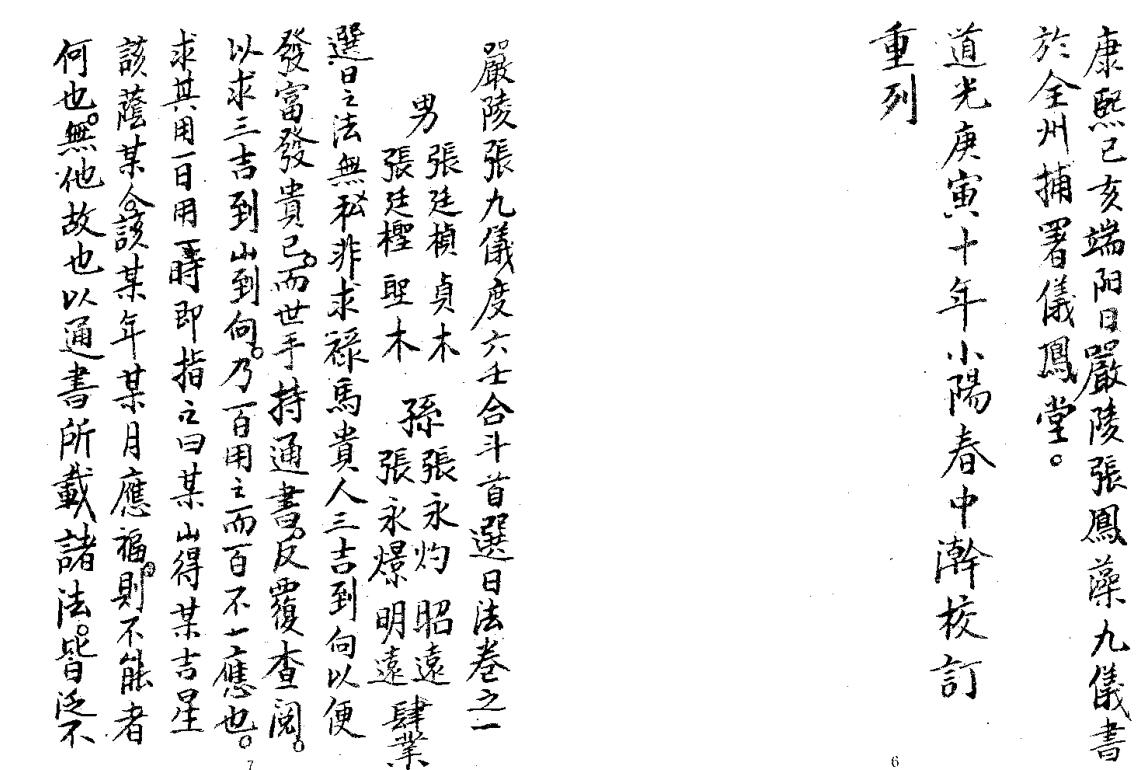 康熙己亥端阳日嚴陵張鳳藻九儀書
於全州捕署儀鳳堂。
道光庚寅十年小陽春中澣校訂
重列
6
嚴陵張九儀度六壬合斗首選日法卷之一
男 張廷楨貞木 孫張永灼昭遠
張廷檉聖木 張永爆明遠 肆業
選日之法無私非求祿馬貴人三吉到向以便
發富發貴已。而世手持通書。反覆查閱。
以求三吉到山到向。乃一百用之而百不一應也。
求其用一日用一時即指之曰某山得某吉星
該蔭某命。該某年某月應福。則不能者
何也。無他故也以通書所載諸法。皆泛不
7